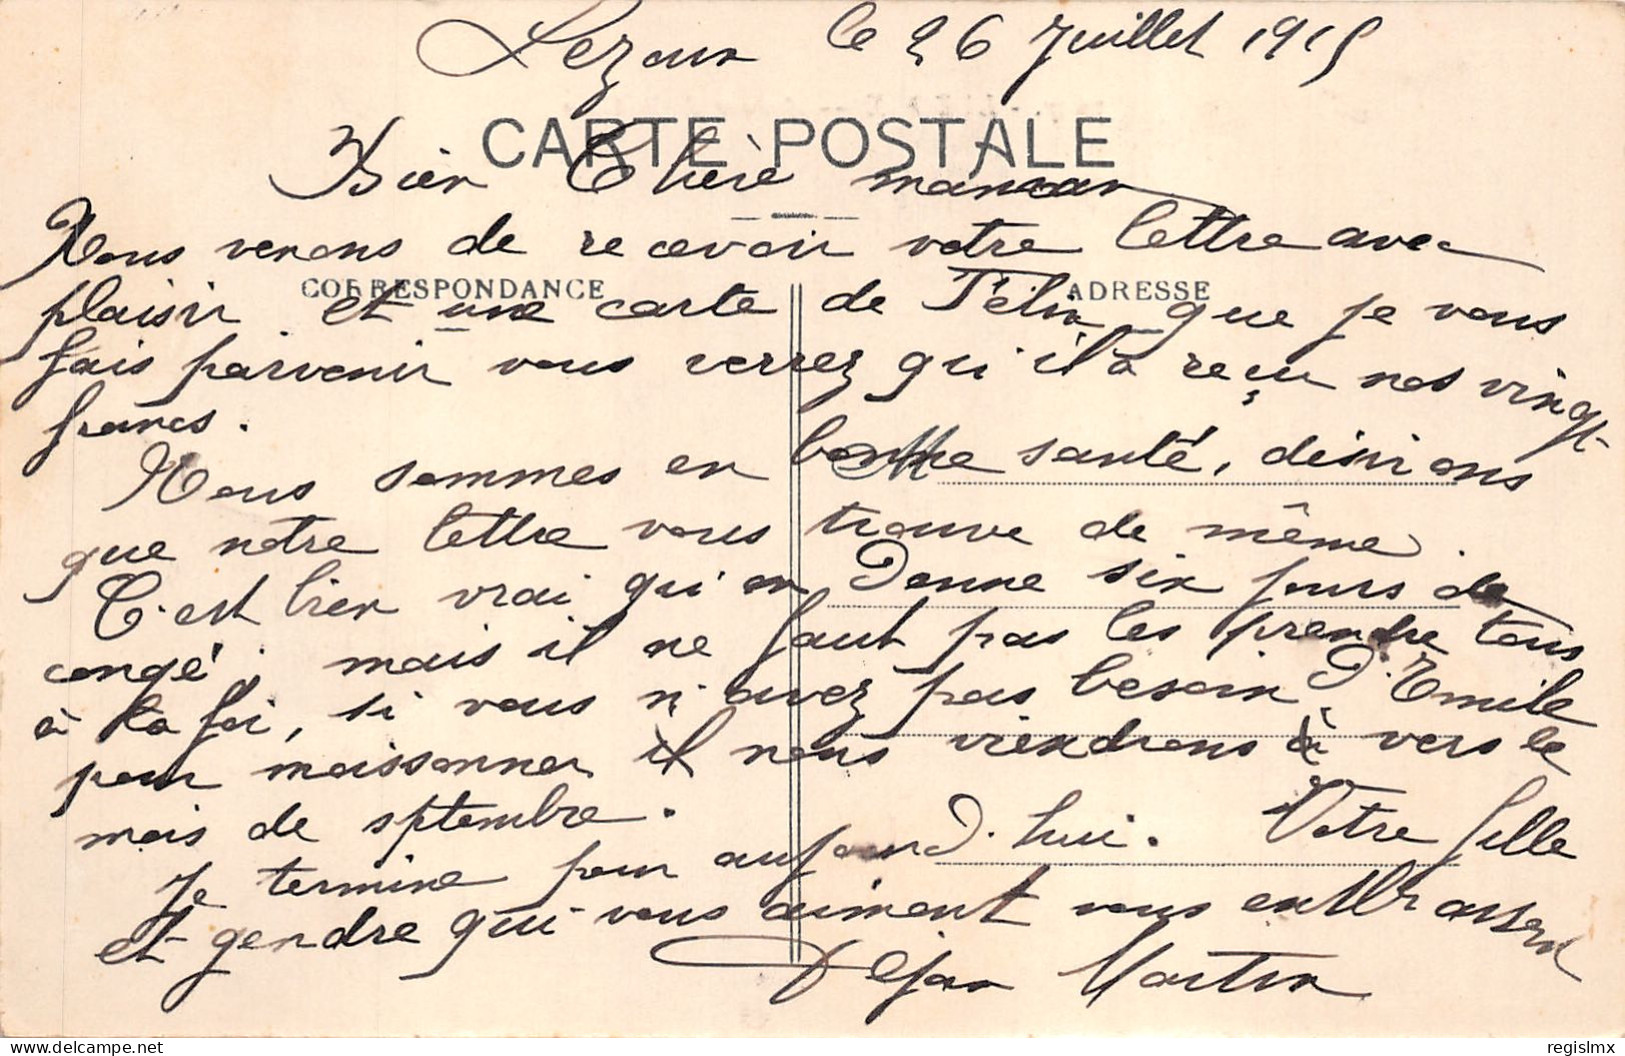 Lezoux le 26 Juillet 1915
CARTE POSTALE
Bien Chère maman
Nous venons de recevoir votre lettre avec
CORRESPONDANCE
ADRESSE
plaisir et une carte de Félix que je vous
fais parvenir vous verrez qu'il a reçu nos vingt
francs.
Nous sommes en bonne santé, désirons
que notre lettre vous trouve de même.
C'est bien vrai qu'on Donne six jours de
congé, mais il ne faut pas les prendre tous
à la foi, si vous n'avez pas besoin D'Emile
pour moissonner il nous viendrons à vers le
mois de sptembre.
Je termine pour aujourd'hui. Votre fille
et gendre qui vous aiment vous embrassent
Dejan Martin
regislmx